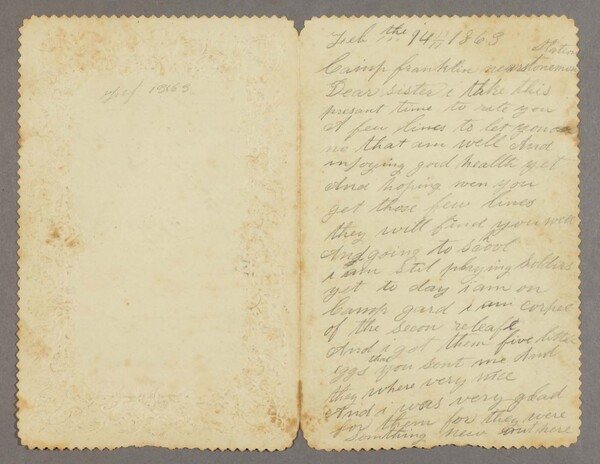 1863
Feb the 14th 1863
Camp franklin near stoneman
Station
Dear sister i take this
present time to rate you
A few lines to let you
no that am well And
injoying good health yet
And hoping wen you
get those few lines
they will find you well
And going to scool
i am stil playing soldirs
yet to day i am on
Camp gard i am corpel
of the secon releaf
And i got them five
ggs that you sent me And
they where very nice
And i was very glad
for them for they were
something new out here